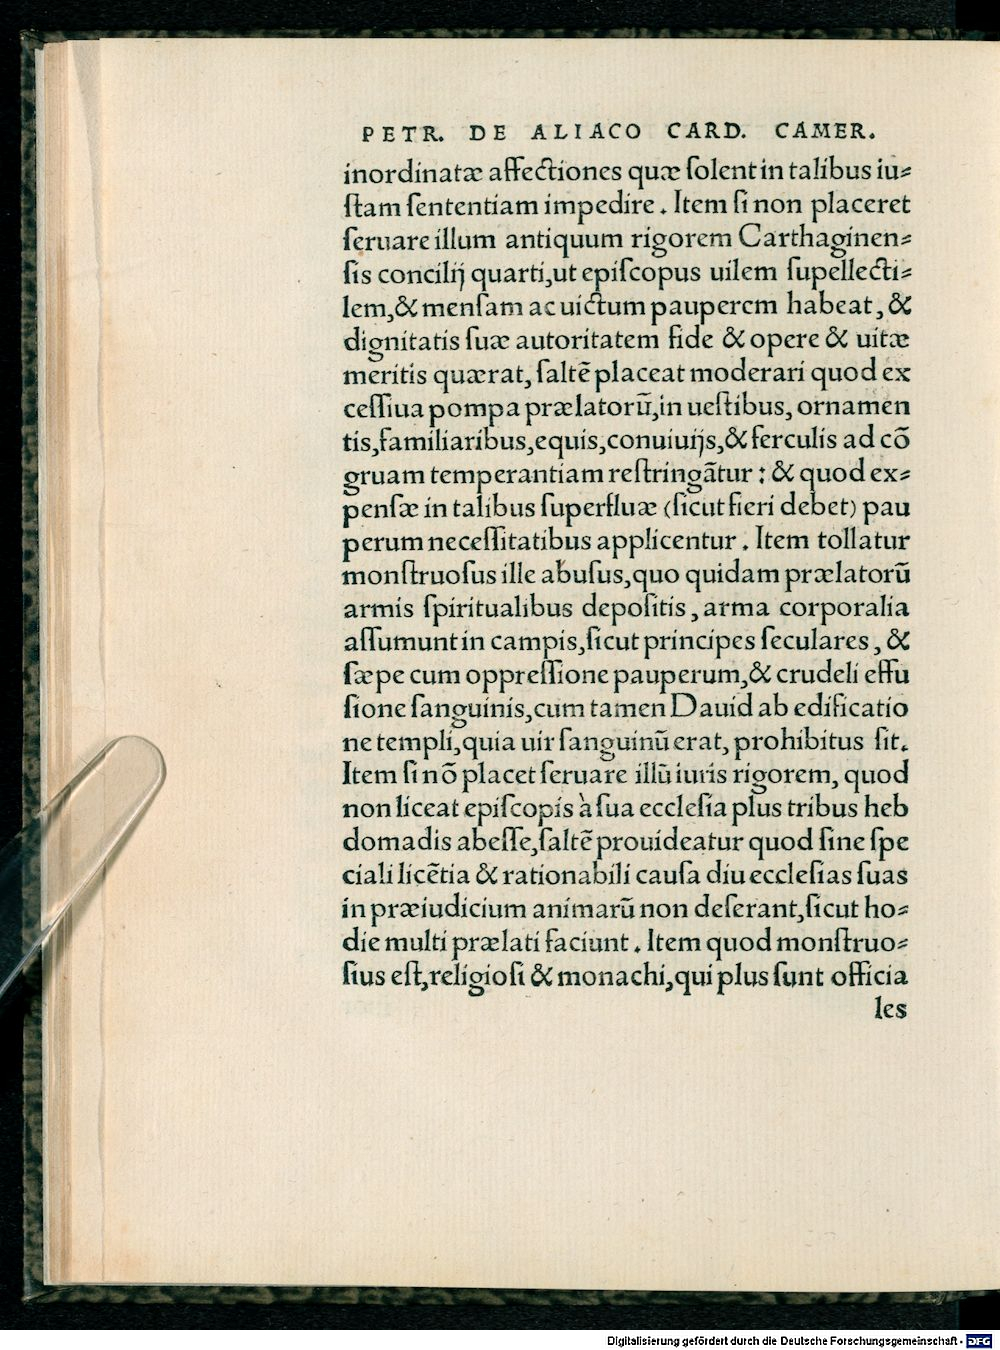 PETR. DE ALIACO CARD. CAMER.
inordinatæ affectiones quæ ſolent in talibus iu⸗
ſtam ſententiam impedire. Item ſi non placeret
ſeruare illum antiquum rigorem Carthaginen⸗
ſis concilij quarti, ut epiſcopus uilem ſupellecti⸗
lem, & menſam ac uictum pauperem habeat, &
dignitatis ſuæ autoritatem fide & opere & uitæ
meritis quærat, ſaltē placeat moderari quod ex
ceſſiua pompa prælatorū, in ueſtibus, ornamen
tis, familiaribus, equis, conuiuijs, & ferculis ad cō
gruam temperantiam reſtringātur: & quod ex⸗
penſæ in talibus ſuperfluæ (ſicut fieri debet) pau
perum neceſſitatibus applicentur. Item tollatur
monſtruoſus ille abuſus, quo quidam prælatorū
armis ſpiritualibus depoſitis, arma corporalia
aſſumunt in campis, ſicut principes ſeculares, &
ſæpe cum oppreſſione pauperum, & crudeli effu
ſione ſanguinis, cum tamen Dauid ab edificatio
ne templi, quia uir ſanguinū erat, prohibitus ſit.
Item ſi nō placet ſeruare illū iuris rigorem, quod
non liceat epiſcopis à ſua eccleſia plus tribus heb
domadis abeſſe, ſaltē prouideatur quod ſine ſpe
ciali licētia & rationabili cauſa diu eccleſias ſuas
in præiudicium animarū non deſerant, ſicut ho⸗
die multi prælati faciunt. Item quod monſtruo⸗
ſius eſt, religioſi & monachi, qui plus ſunt officia
les
Digitalisierung gefördert durch die Deutsche Forschungsgemeinschaft - DFG